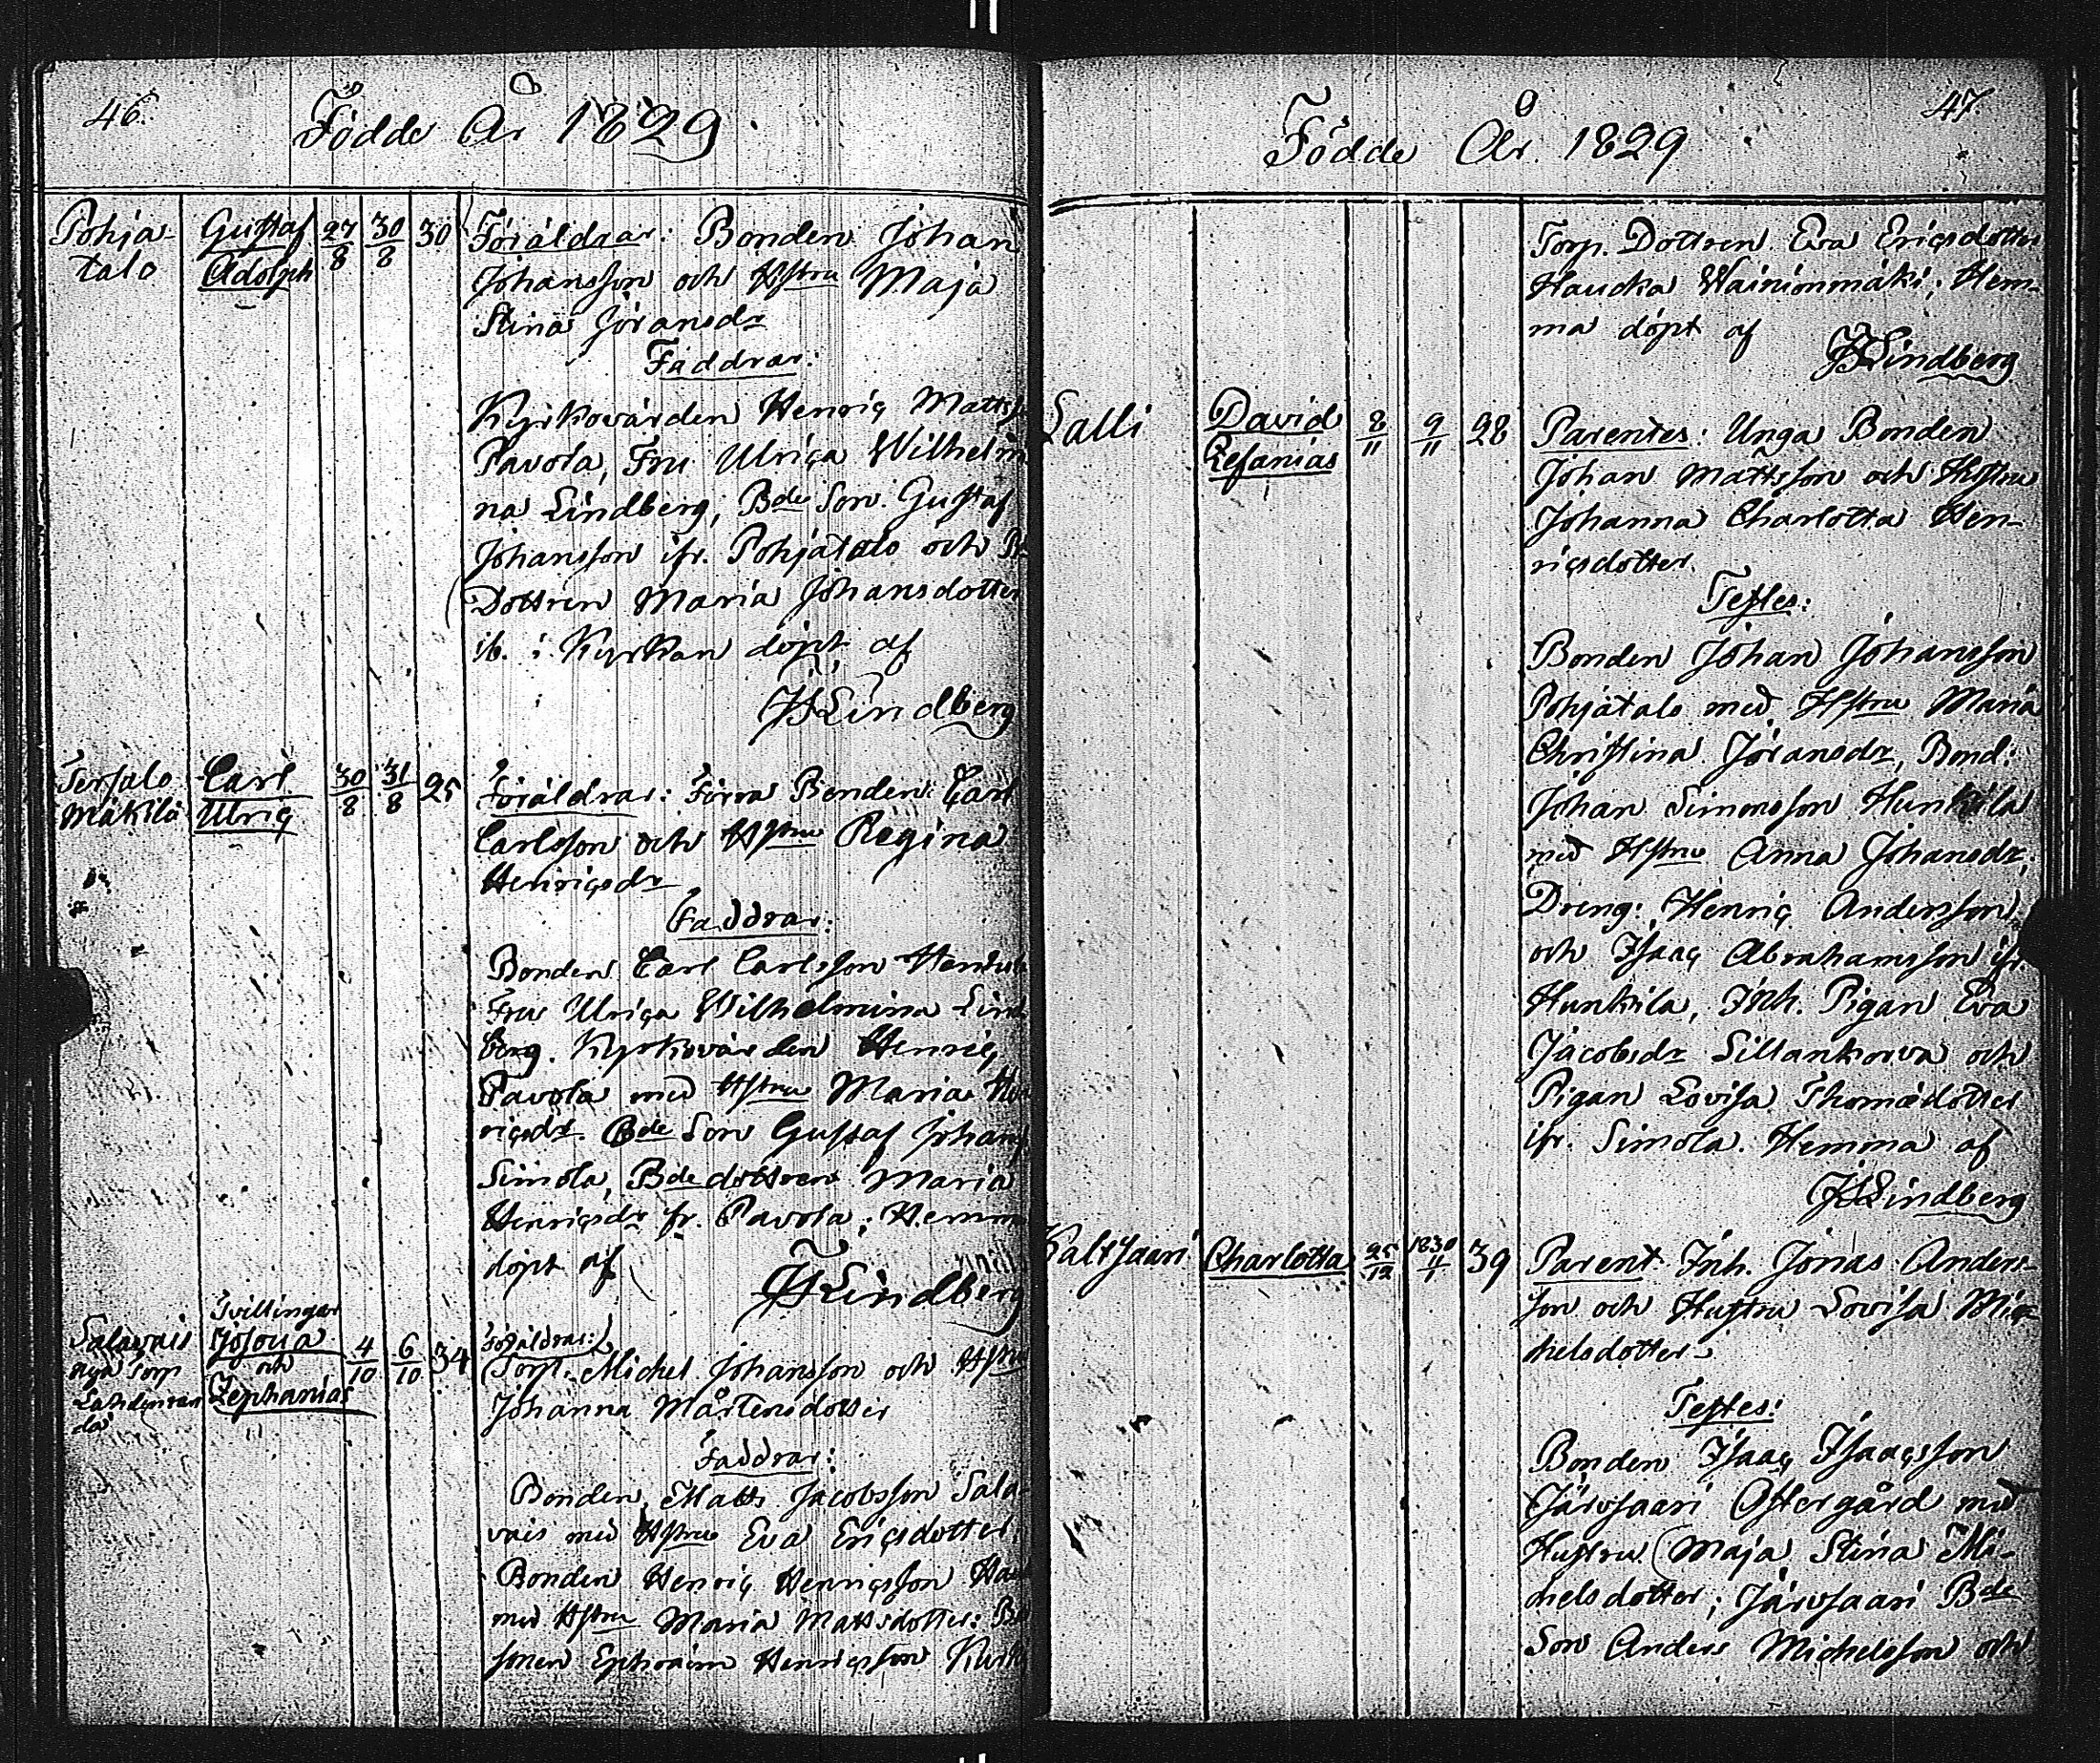 46.
Födde År 1829.
Pohja-
talo
Gustaf
Adolph
27/8
30/8
30
Föräldrar: Bonden Johan
Johansson och Hstru Maja
Stina Jöransdr
Faddrar:
Kyrkovärden Henriç Matts
Pavola, Fru Ulriça Wilhelmi
na Lindberg, Bde Son Gustaf
Johansson ifr. Pohjatalo och
Dottren Maria Johansdotter
ib. i Kyrkan döpt af
JH Lindberg
Tersalo
Mäkilä
Carl
Ulriç
30/8
31/8
25
Föräldrar: Förra Bonden Carl
Carlsson och Hstru Regina
Henriçsdr
Faddrar:
Bonden Carl Carlsson
Fru Ulriça Wilhelmina Lind
berg. Kyrkovärden Henriç
Pavola med Hstru Maria Hen
riçsdr. Bde Son Gustaf Johans
Simola, Bde dottren Maria
Henriçsdr fr. Pavola; Hemma
döpt af
JH Lindberg
Salavais
nya Torp
Lahdenran
da
Tvillingar
Josoua
och
Zephanias
4/10
6/10
34
Föräldrar:
Torp. Michel Johansson och Hstru
Johanna Mårtensdotter
Faddrar:
Bonden Matts Jacobsson Sala-
vais med Hstru Eva Ericsdotter,
Bonden Henriç Henriçsson
med Hstru Maria Mattsdotter: Bde
sonen Ephraim Henriçsson
47.
Födde År. 1829
Torp. Dottren Eva Eriçsdotter
Haucka Wainionmäki; Hem-
ma döpt af
JH Lindberg
Lalli
David
Zefanias
8/11
9/11
28
Parentes: Unga Bonden
Johan Mattsson och Hustru
Johanna Charlotta Hen-
riçsdotter.
Testes:
Bonden Johan Johansson
Pohjatalo med Hstru Maria
Christina Jöransdr, Bond:
Johan Simonsson Hunkila
med Hstru Anna Johansdr,
Dreng: Henriç Andersson
och Isaaç Abrahamsson ifr.
Hunkila, Inh. Pigan Eva
Jacobsdr Sillankorva och
Pigan Lovisa Thomædotter
ifr. Simola. Hemma af
JH Lindberg
Kaltsaari
Charlotta
25/12
1830
4/1
39
Parent. Inh. Jonas Anders-
son och Hustru Lovisa Mic-
helsdotter
Testes:
Bonden Isaaç Isaaçsson
Järvsaari Östergård med
Hustru Maja Stina Mi-
chelsdotter; Järvsaari Bde
Son Anders Michelsson och